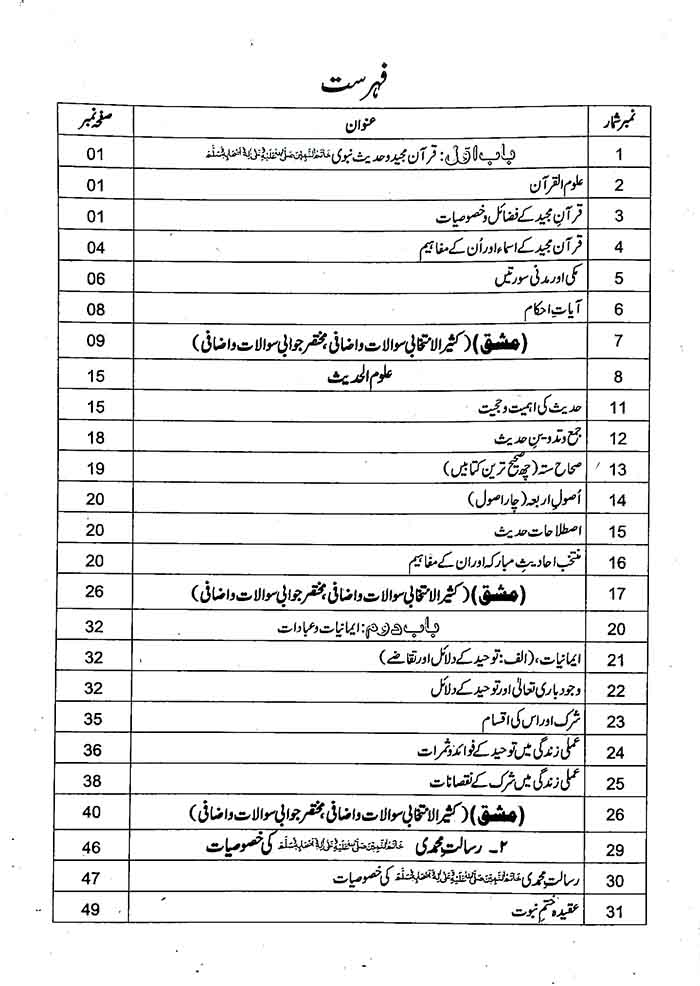 فہرست
نمبر شمار عنوان صفحہ نمبر
1 باب اوّل: قرآن مجید و حدیث نبوی خَاتَمُ النَّبِیّٖنَ صَلَّی اللہُ عَلَیْہِ وَعَلٰی اٰلِہٖ وَاَصْحَابِہٖ وَسَلَّمَ 01
2 علوم القرآن 01
3 قرآنِ مجید کے فضائل و خصوصیات 01
4 قرآن مجید کے اسماء اور اُن کے مفاہیم 04
5 مکی اور مدنی سورتیں 06
6 آیاتِ احکام 08
7 (مشق) (کثیر الانتخابی سوالات و اضافی، مختصر جوابی سوالات و اضافی) 09
8 علوم الحدیث 15
11 حدیث کی اہمیت و حجیت 15
12 جمع و تدوینِ حدیث 18
13 صحاح ستہ (چھ صحیح ترین کتابیں) 19
14 اُصولِ اربعہ (چار اصول) 20
15 اصطلاحات حدیث 20
16 منتخب احادیثِ مبارکہ اور ان کے مفاہیم 20
17 (مشق) (کثیر الانتخابی سوالات و اضافی، مختصر جوابی سوالات و اضافی) 26
20 باب دوم: ایمانیات و عبادات 32
21 ایمانیات، (الف: توحید کے دلائل اور تقاضے) 32
22 وجود باری تعالیٰ اور توحید کے دلائل 32
23 شرک اور اس کی اقسام 35
24 عملی زندگی میں توحید کے فوائد و ثمرات 36
25 عملی زندگی میں شرک کے نقصانات 38
26 (مشق) (کثیر الانتخابی سوالات و اضافی، مختصر جوابی سوالات و اضافی) 40
29 ۲۔ رسالتِ محمدی خَاتَمُ النَّبِیّٖنَ صَلَّی اللہُ عَلَیْہِ وَعَلٰی اٰلِہٖ وَاَصْحَابِہٖ وَسَلَّمَ کی خصوصیات 46
30 رسالتِ محمدی خَاتَمُ النَّبِیّٖنَ صَلَّی اللہُ عَلَیْہِ وَعَلٰی اٰلِہٖ وَاَصْحَابِہٖ وَسَلَّمَ کی خصوصیات 47
31 عقیدہ ختمِ نبوت 49